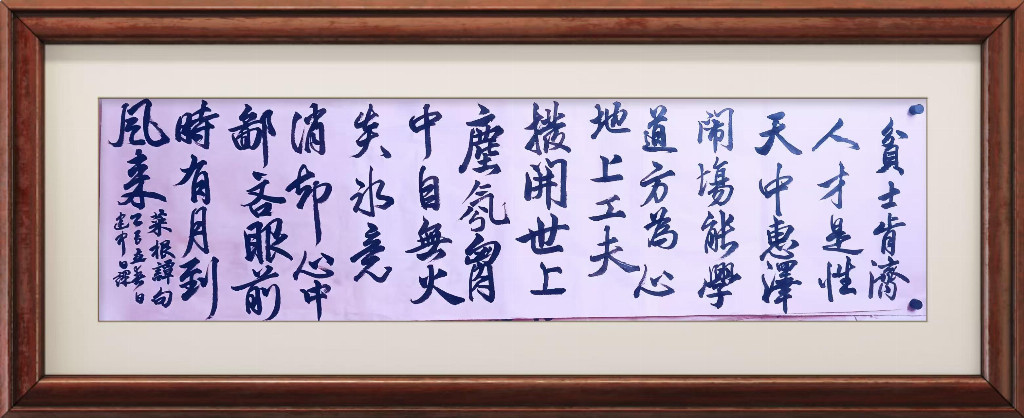 貧士肯濟
人才是性
天中惠澤
闹場能學
道方為心
地上工夫
撥開世上
塵氛胷
中自無火
炎冰竞
消却心中
鄙吝眼前
時有月到
風来
菜根譚句
乙巳五日